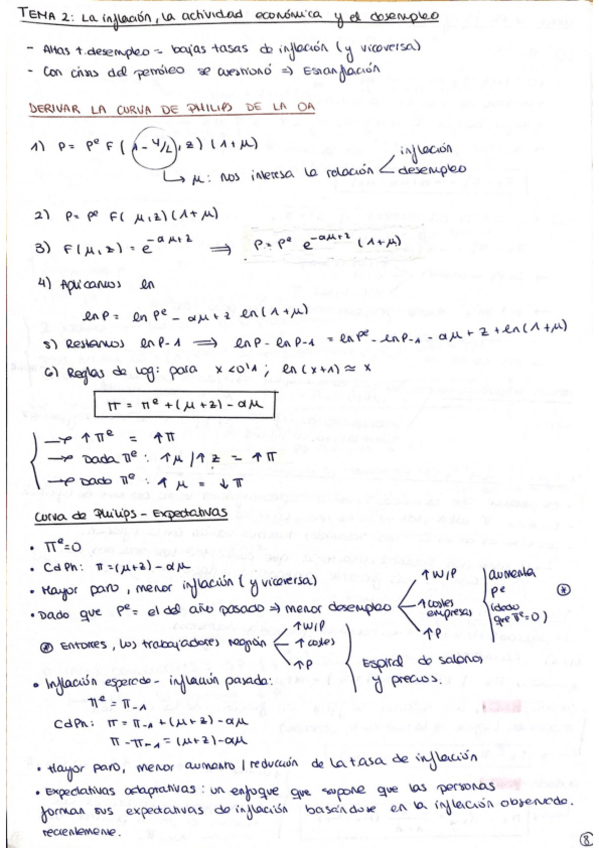 TEMA 2: La inflación, la actividad económica y el desempleo
- Altas t. desempleo = bajas tasas de inflación (y viceversa)
- Con crisis del petróleo se cuestionó => Estanflación
DERIVAR LA CURVA DE PHILIPS DE LA OA
1) P = P^e F(1-u/L, z) (1+μ)
↳ μ: nos interesa la relación < inflación
desempleo
2) P = P^e F(μ, z) (1+μ)
3) F(μ, z) = e^{-αμ+z} ⟹ P = P^e e^{-αμ+z} (1+μ)
4) Aplicamos ln
ln P = ln P^e - αμ + z ln(1+μ)
5) Restamos ln P-1 ⟹ ln P - ln P-1 = ln P^e - ln P-1 - αμ + z + ln(1+μ)
6) Reglas de log: para x < 0'1 ; ln(x+1) ≈ x
π = π^e + (μ+z) - αμ
→ ↑π^e = ↑π
→ Dada π^e: ↑μ/↑z = ↑π
→ Dado π^e: ↑μ = ↓π
Curva de Philips - Expectativas
• π^e = 0
• CdPh: π = (μ+z) - αμ
• Mayor paro, menor inflación (y viceversa)
• Dado que P^e = el del año pasado => menor desempleo < ↑W/P
↑costes empresas
↑P
aumenta P^e (dado que π^e = 0) (*)
(*) Entonces, los trabajadores negocian < ↑W/P
↑costes
↑P
Espiral de salarios y precios.
• Inflación esperada - inflación pasada:
π^e = π-1
CdPh: π = π-1 + (μ+z) - αμ
π - π-1 = (μ+z) - αμ
• Mayor paro, menor aumento / reducción de la tasa de inflación
• Expectativas adaptativas: un enfoque que supone que las personas
forman sus expectativas de inflación basándose en la inflación observada
recientemente.
8